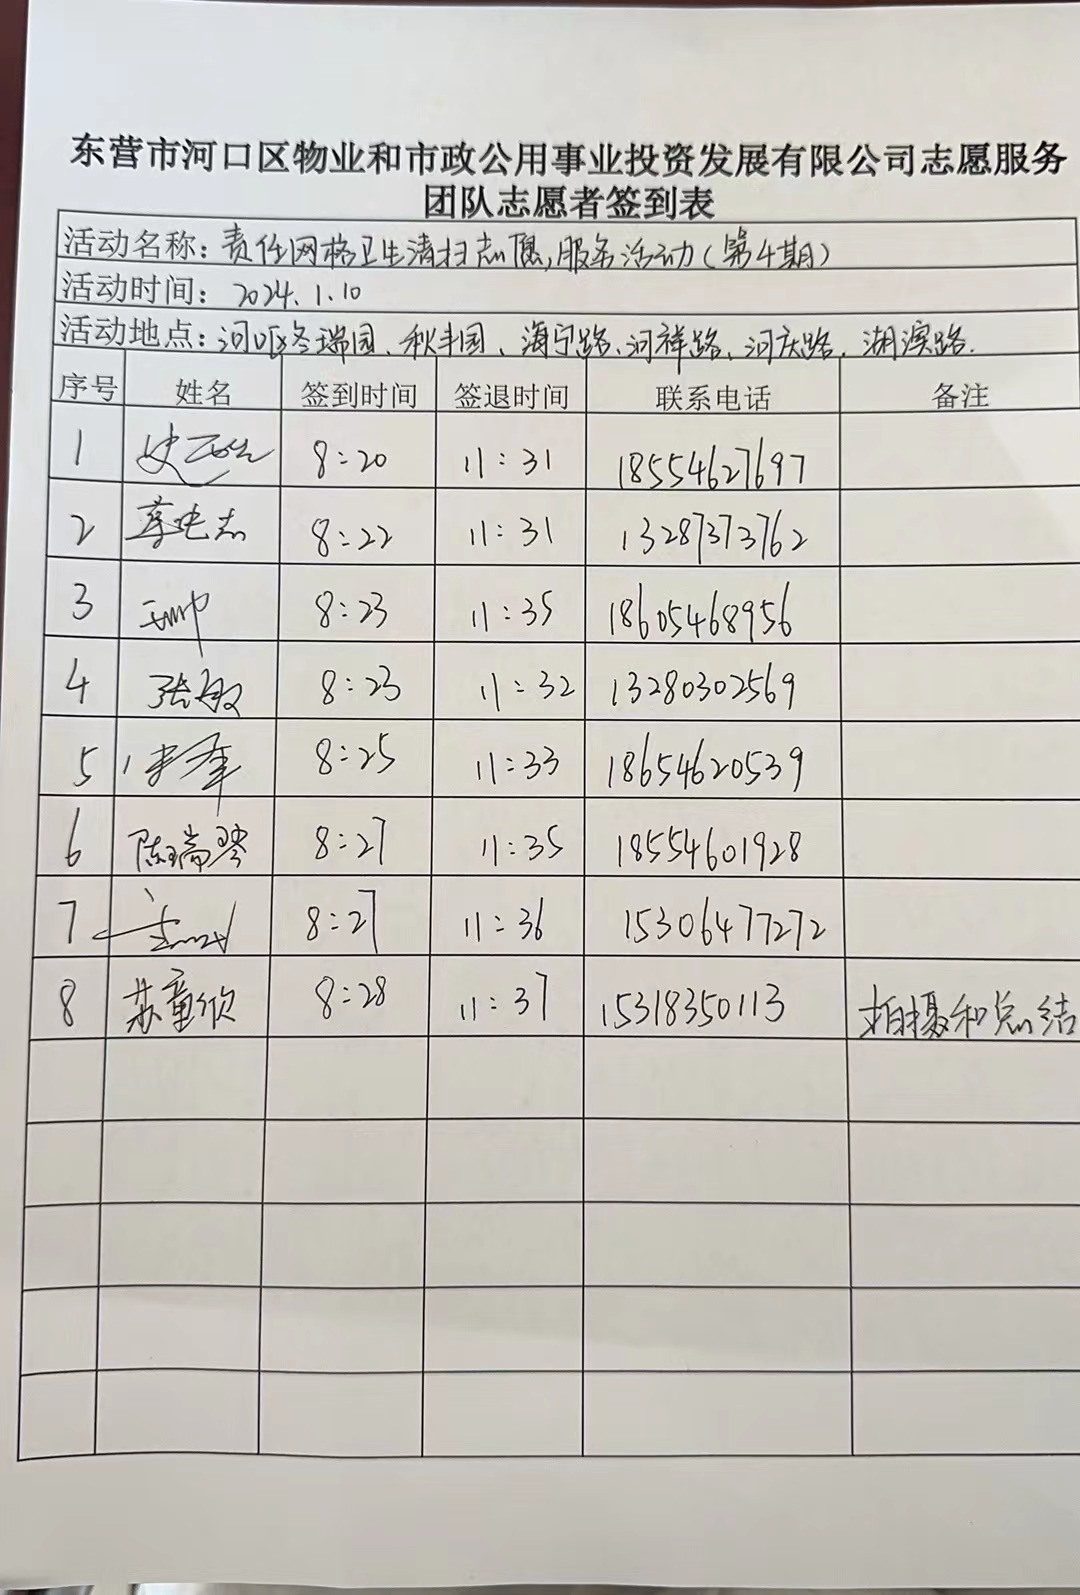 东营市河口区物业和市政公用事业投资发展有限公司志愿服务
团队志愿者签到表
活动名称：责任网格卫生清扫志愿服务活动（第4期）
活动时间：2024.1.10
活动地点：河口区冬瑞园、秋丰园、海宁路、河祥路、河庆路、湖滨路.
序号 姓名 签到时间 签退时间 联系电话 备注
1 8:20 11:31 18554627697
2 8:22 11:31 13287373762
3 8:23 11:35 18605468956
4 张敏 8:23 11:32 13280302569
5 8:25 11:33 18654620539
6 陈瑞琴 8:27 11:35 18554601928
7 8:27 11:36 15306477272
8 苏童欣 8:28 11:37 15318350113 拍摄和总结